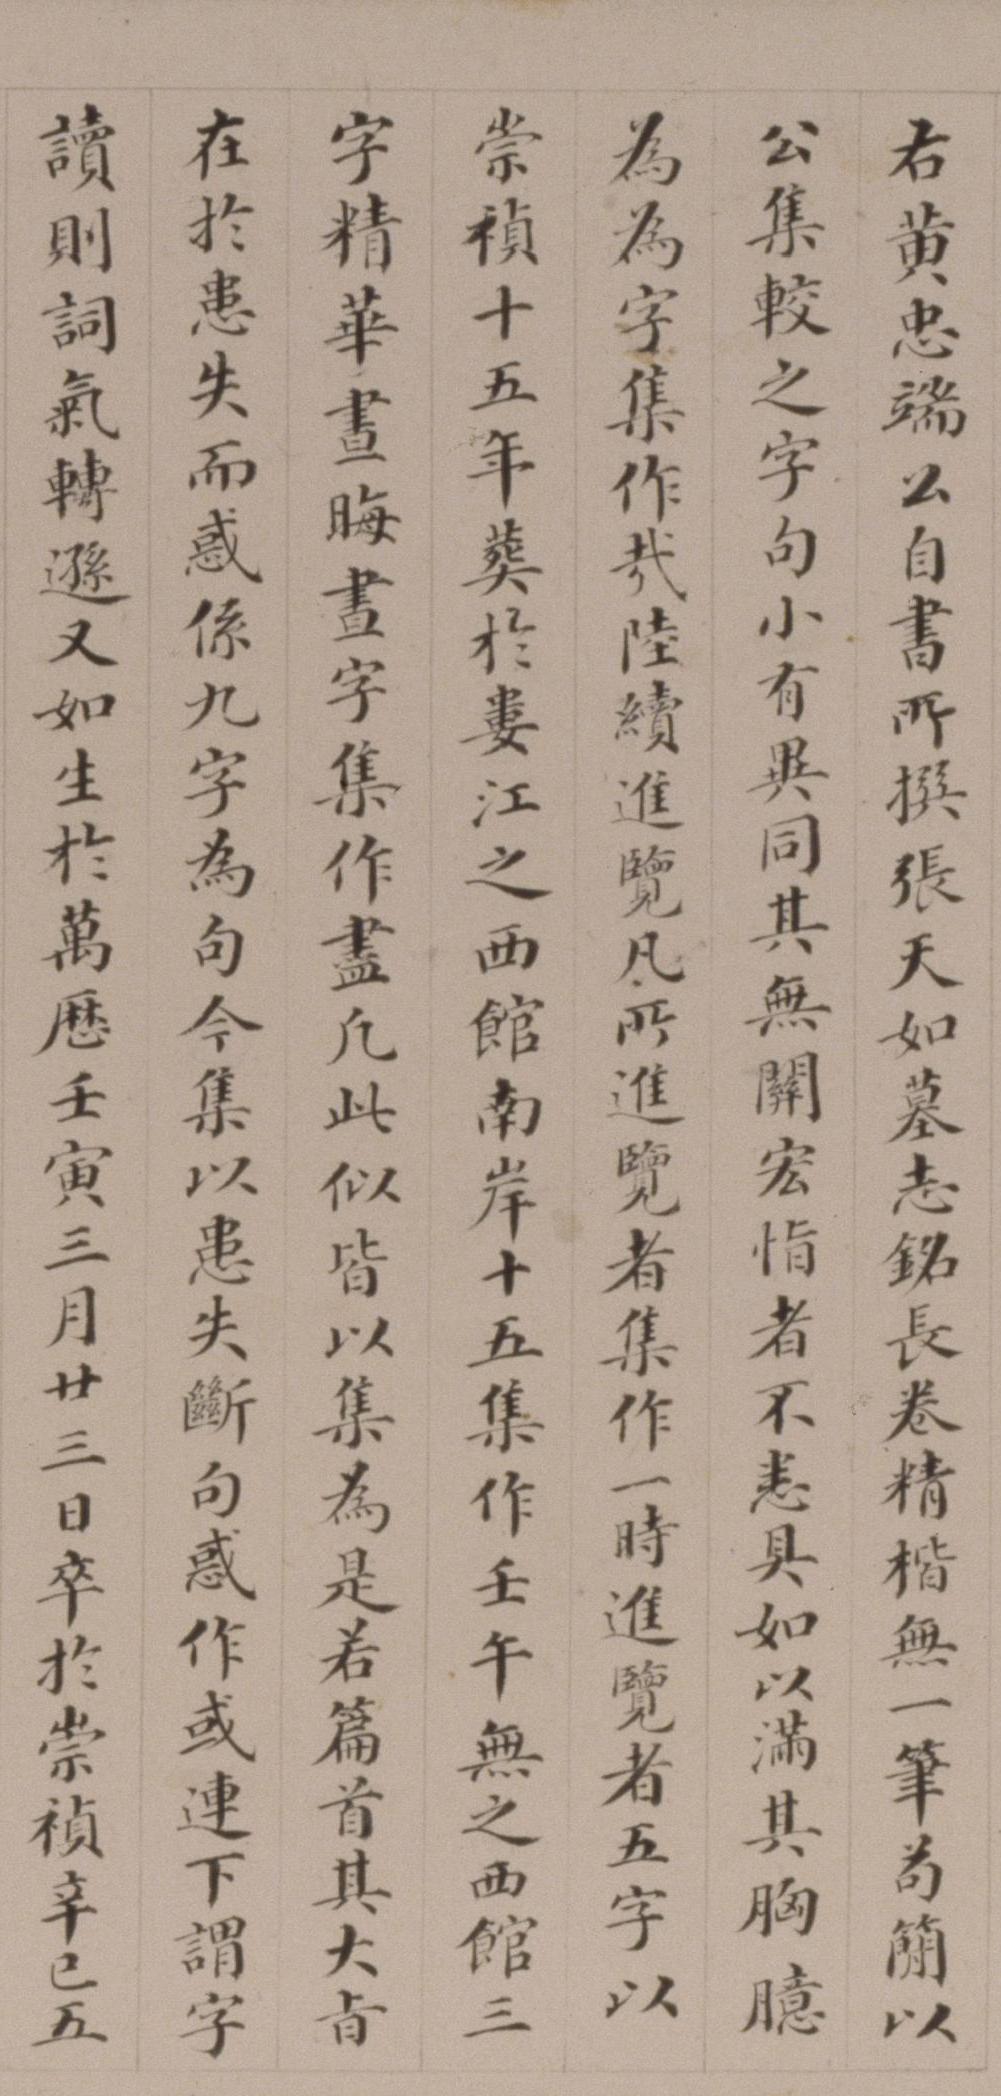 右黄忠端公自書所撰張天如墓志銘長卷精楷無一筆苟簡以
公集較之字句小有異同其無關宏恉者不悉具如以滿其胸臆
為為字集作哉陸續進覽凡所進覽者集作一時進覽者五字以
崇禎十五年葬於婁江之西館南岸十五集作壬午無之西館三
字精華晝晦晝字集作盡凡此似皆以集為是若篇首其大旨
在於患失而惑係九字為句今集以患失斷句惑作或連下謂字
讀則詞氣轉遜又如生於萬歷壬寅三月廿三日卒於崇禎辛巳五